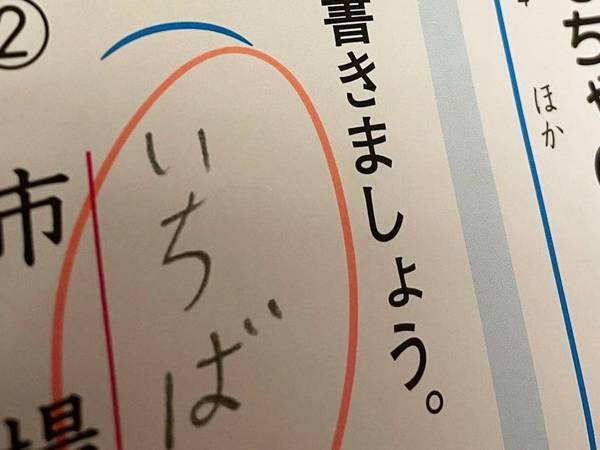 ちゃ
ほか
書きましょう。
いちば
②
市場